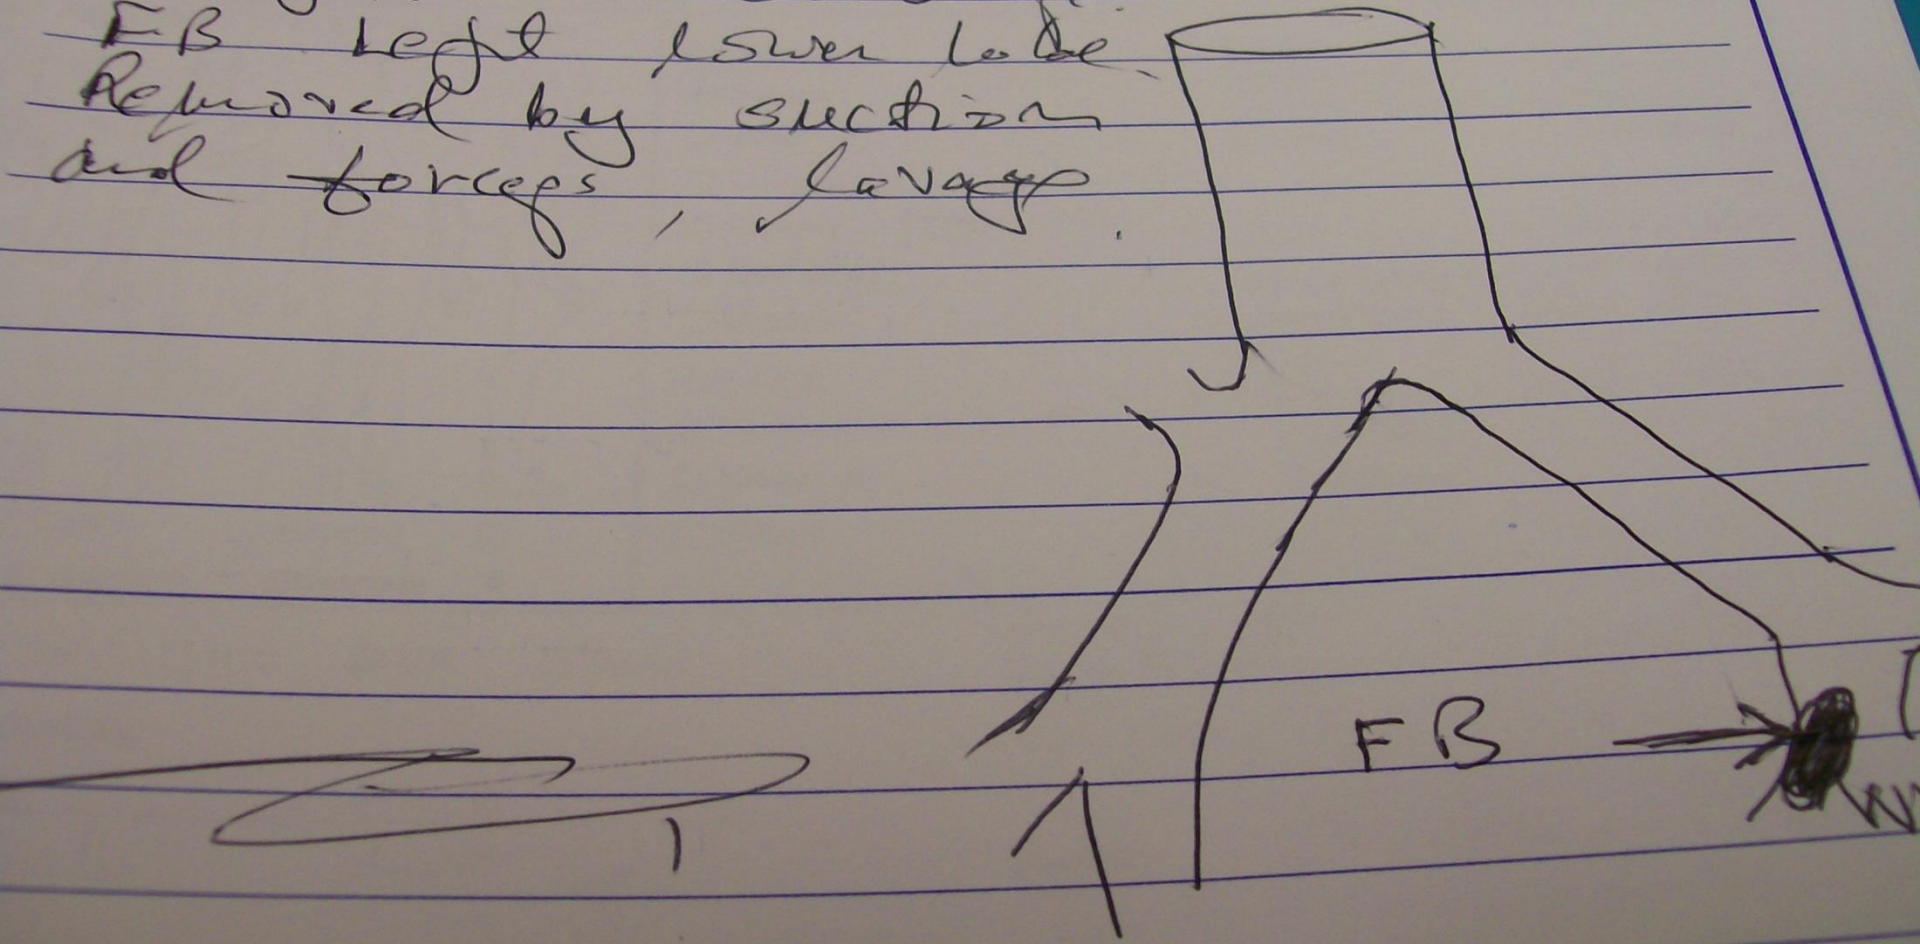 FB Left lower Lobe.
Removed by suction
and forceps, lavage.
FB